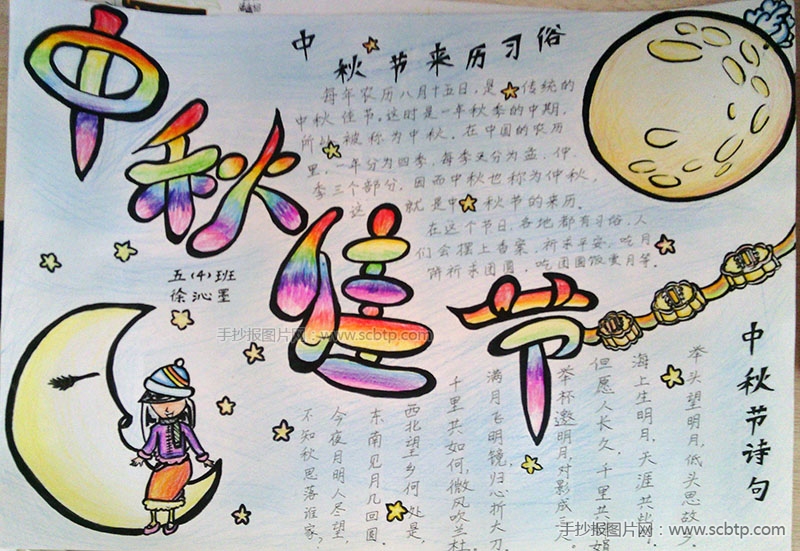 中秋佳节
中秋节来历习俗
每年农历八月十五日，是传统的
中秋佳节。这时是一年秋季的中期，
所以被称为中秋。在中国的农历
里，一年分为四季，每季又分为孟、仲、
季三个部分，因而中秋也称为仲秋，
这就是中秋节的来历。
在这个节日，各地都有习俗，人
们会摆上香案，祈求平安，吃月
饼祈求团圆，吃团圆饭赏月等。
五(4)班
徐沁墨
手抄报图片网：www.scbtp.com
中秋节诗句
举头望明月，低头思故
海上生明月，天涯共
但愿人长久，千里共婵娟
举杯邀明月，对影成
满月飞明镜，归心折大刀
千里共如何，微风吹兰杜
西北望乡何处是，
东南见月几回圆。
今夜月明人尽望，
不知秋思落谁家？
手抄报图片网：www.scbtp.com